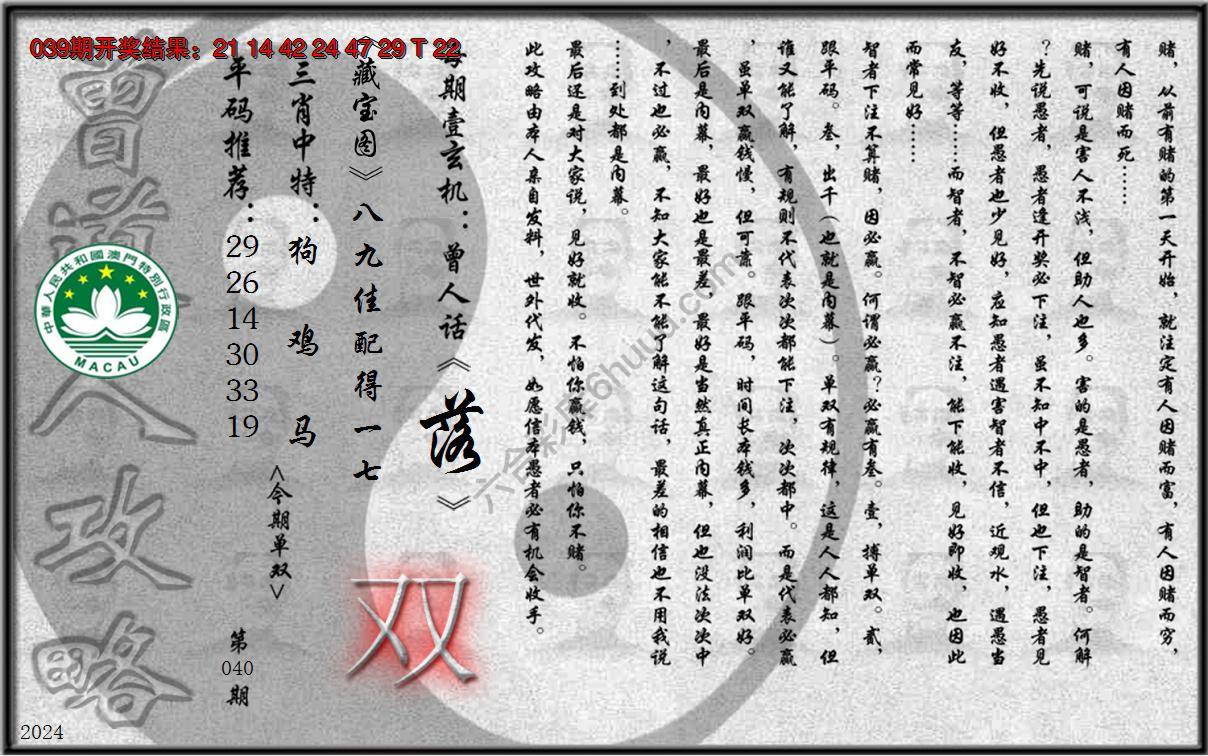 039期开奖结果：21 14 42 24 47 29 T 22
赌，从前有赌的第一天开始，就注定有人因赌而富，有人因赌而穷，
有人因赌而死……
赌，可说是害人不浅，但助人也多。害的是愚者，助的是智者。何解
？先说愚者，愚者逢开奖必下注，虽不知中不中，但也下注，愚者见
好不收，但愚者也少见好，应知愚者遇害智者不信，近观水，遇愚当
友，等等……而智者，不智必赢不注，能下能收，见好即收，也因此
而常见好……
智者下注不算赌，因必赢。何谓必赢？必赢有叁。壹，搏单双。贰，
跟平码。叁，出千（也就是内幕）。单双有规律，这是人人都知，但
谁又能了解，有规则不代表次次都能下注，次次都中。而是代表必赢
，虽单双赢钱慢，但可靠。跟平码，时间长本钱多，利润比单双好。
最后是内幕，最好也是最差，最好是当然真正内幕，但也没法次次中
，不过也必赢，不知大家能不能了解这句话，最差的相信也不用我说
……到处都是内幕。
最后还是对大家说，见好就收。不怕你赢钱，只怕你不赌。
此攻略由本人亲自发料，世外代发，如愿信本愚者必有机会收手。
每期壹玄机：曾人话《落》
《藏宝图》八九佳配得一七
双
三肖中特：狗 鸡 马
<今期单双>
平码推荐：29 26 14 30 33 19
第040期
曾道人攻略
中華人民共和國澳門特別行政區
MACAU
六合彩库6huuu.com
2024